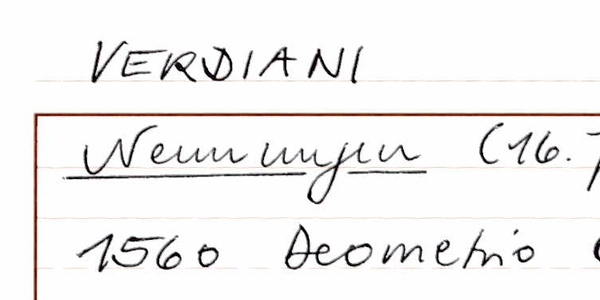 VERDIANI
Nennungen (16.
1560 Deometrio